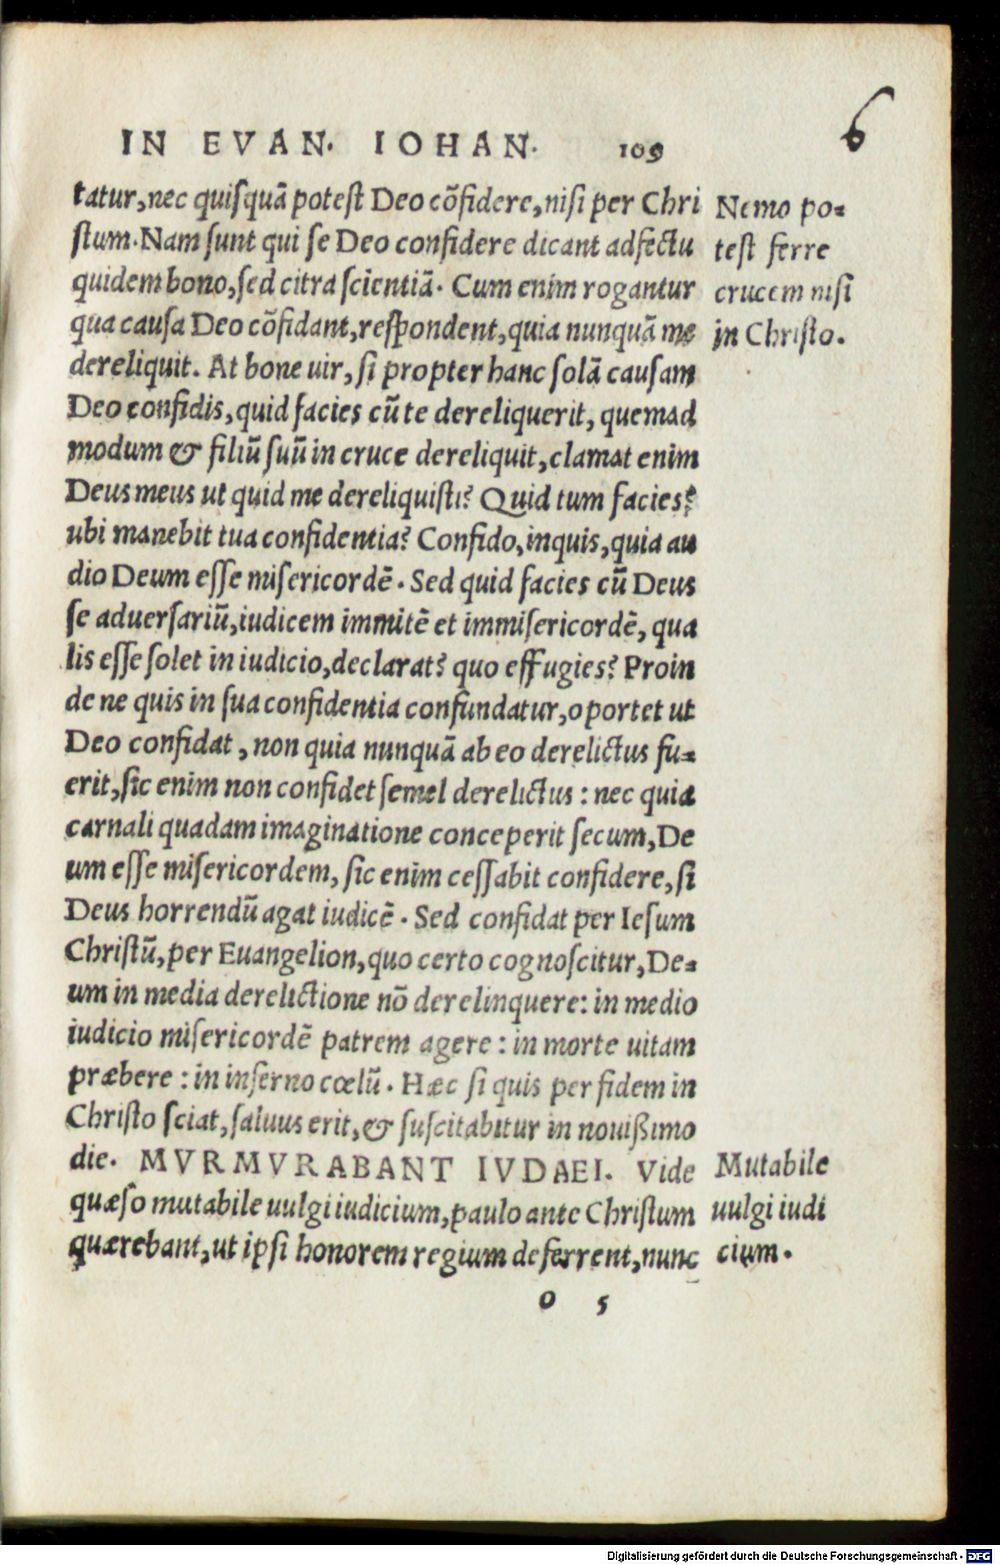 6
IN EVAN. IOHAN. 109
tatur, nec quisquã potest Deo cõfidere, nisi per Chri
stum. Nam sunt qui se Deo confidere dicant adfectu
quidem bono, sed citra scientiã. Cum enim rogantur
qua causa Deo cõfidant, respondent, quia nunquã me
dereliquit. At bone uir, si propter hanc solã causam
Deo confidis, quid facies cũ te dereliquerit, quemad
modum & filiũ suũ in cruce dereliquit, clamat enim
Deus meus ut quid me dereliquisti? Quid tum facies?
ubi manebit tua confidentia? Confido, inquis, quia au
dio Deum esse misericordẽ. Sed quid facies cũ Deus
se aduersariũ, iudicem immitẽ et immisericordẽ, qua
lis esse solet in iudicio, declarat? quo effugies? Proin
de ne quis in sua confidentia confundatur, oportet ut
Deo confidat, non quia nunquã ab eo derelictus fu-
erit, sic enim non confidet semel derelictus: nec quia
carnali quadam imaginatione conceperit secum, De
um esse misericordem, sic enim cessabit confidere, si
Deus horrendũ agat iudicẽ. Sed confidat per Iesum
Christũ, per Euangelion, quo certo cognoscitur, De-
um in media derelictione nõ derelinquere: in medio
iudicio misericordẽ patrem agere: in morte uitam
præbere: in inferno cœlũ. Hæc si quis per fidem in
Christo sciat, saluus erit, & suscitabitur in nouißimo
die. MVRMVRABANT IVDAEI. Vide
quæso mutabile uulgi iudicium, paulo ante Christum
quærebant, ut ipsi honorem regium deferrent, nunc
o 5
Nemo po-
test ferre
crucem nisi
in Christo.
Mutabile
uulgi iudi
cium.
Digitalisierung gefördert durch die Deutsche Forschungsgemeinschaft - DFG